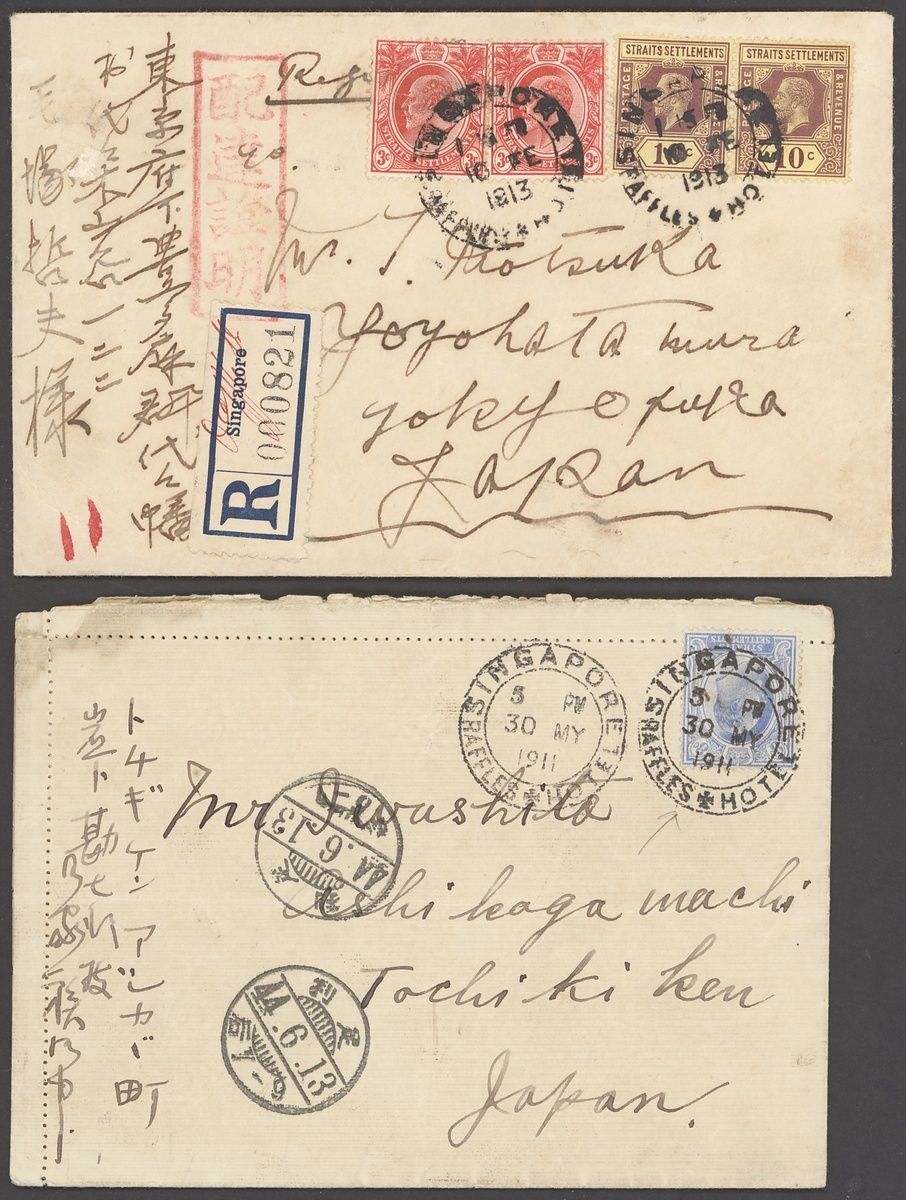 STRAITS SETTLEMENTS
STRAITS SETTLEMENTS
POSTAGE & REVENUE
& REVENUE
3c 3c 3c
10c 10c
STRAITS SETTLEMENTS
SINGAPORE
10 FE
1913
RAFFLES HOTEL
10 FE
1913
RAFFLES
配達証明
Mr. T. Motsuka
Yoyohata mura
Tokyo fuka
Japan
R
Singapore
000821
東京府下豊多摩郡代々幡
哲夫様
STRAITS SETTLEMENTS
SINGAPORE
3 PM
30 MY
1911
RAFFLES HOTEL
SINGAPORE
3 PM
30 MY
1911
RAFFLES HOTEL
Mr Iwashita
Ashikaga machi
Tochiki ken
Japan.
トチギケン アシカガ町
岩下
44.6.13
44.6.13